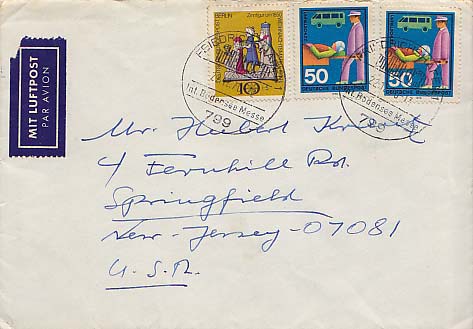 MIT LUFTPOST
PAR AVION
BERLIN
10
50
DEUTSCHE BUNDESPOST
50
DEUTSCHE BUNDESPOST
Int. Bodensee Messe
799
Int. Bodensee Messe
799
Mr. Herbert
4 Fernhill Rd.
Springfield
New-Jersey-07081
U.S.A.